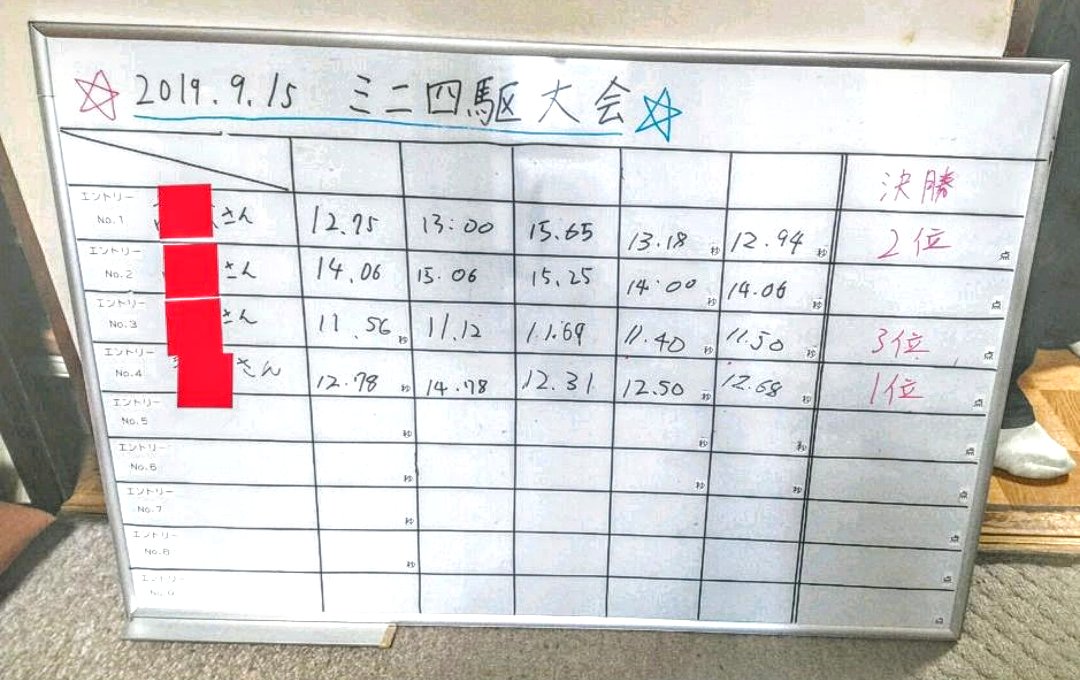 2019.9.15 ミニ四駆大会
決勝
エントリー No.1 さん 12.75 13:00 15.65 13.18秒 12.94秒 2位 点
エントリー No.2 さん 14.06 15.06 15.25 14:00秒 14.06秒 点
エントリー No.3 さん 11.56秒 11.12 11.69 11.40秒 11.50秒 3位 点
エントリー No.4 さん 12.78秒 14.78 12.31 12.50秒 12.68秒 1位 点
エントリー No.5 秒 秒 秒 点
エントリー No.6 秒 秒 秒 点
エントリー No.7 秒 点
エントリー No.8 秒 点
エントリー 点